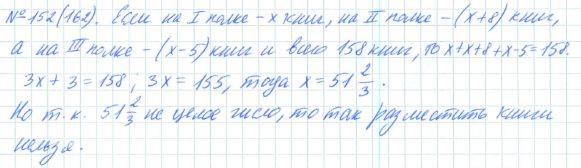 №152(162). Если на I полке - x книг, на II полке - (x+8) книг,
а на III полке - (x-5) книг и всего 158 книг, то x+x+8+x-5=158.
3x+3=158; 3x=155, тогда x=51 2/3.
Но т.к. 51 2/3 не целое число, то так разместить книги
нельзя.